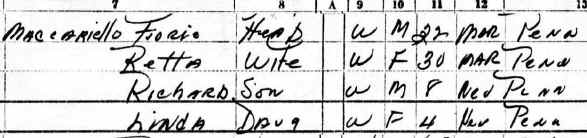 7 8 A 9 10 11 12 13
Maccariello Fiorie Head W M 32 Mar Penn
Retta Wife W F 30 Mar Penn
Richard Son W M 8 Nev Penn
Linda Daug W F 4 Nev Penn